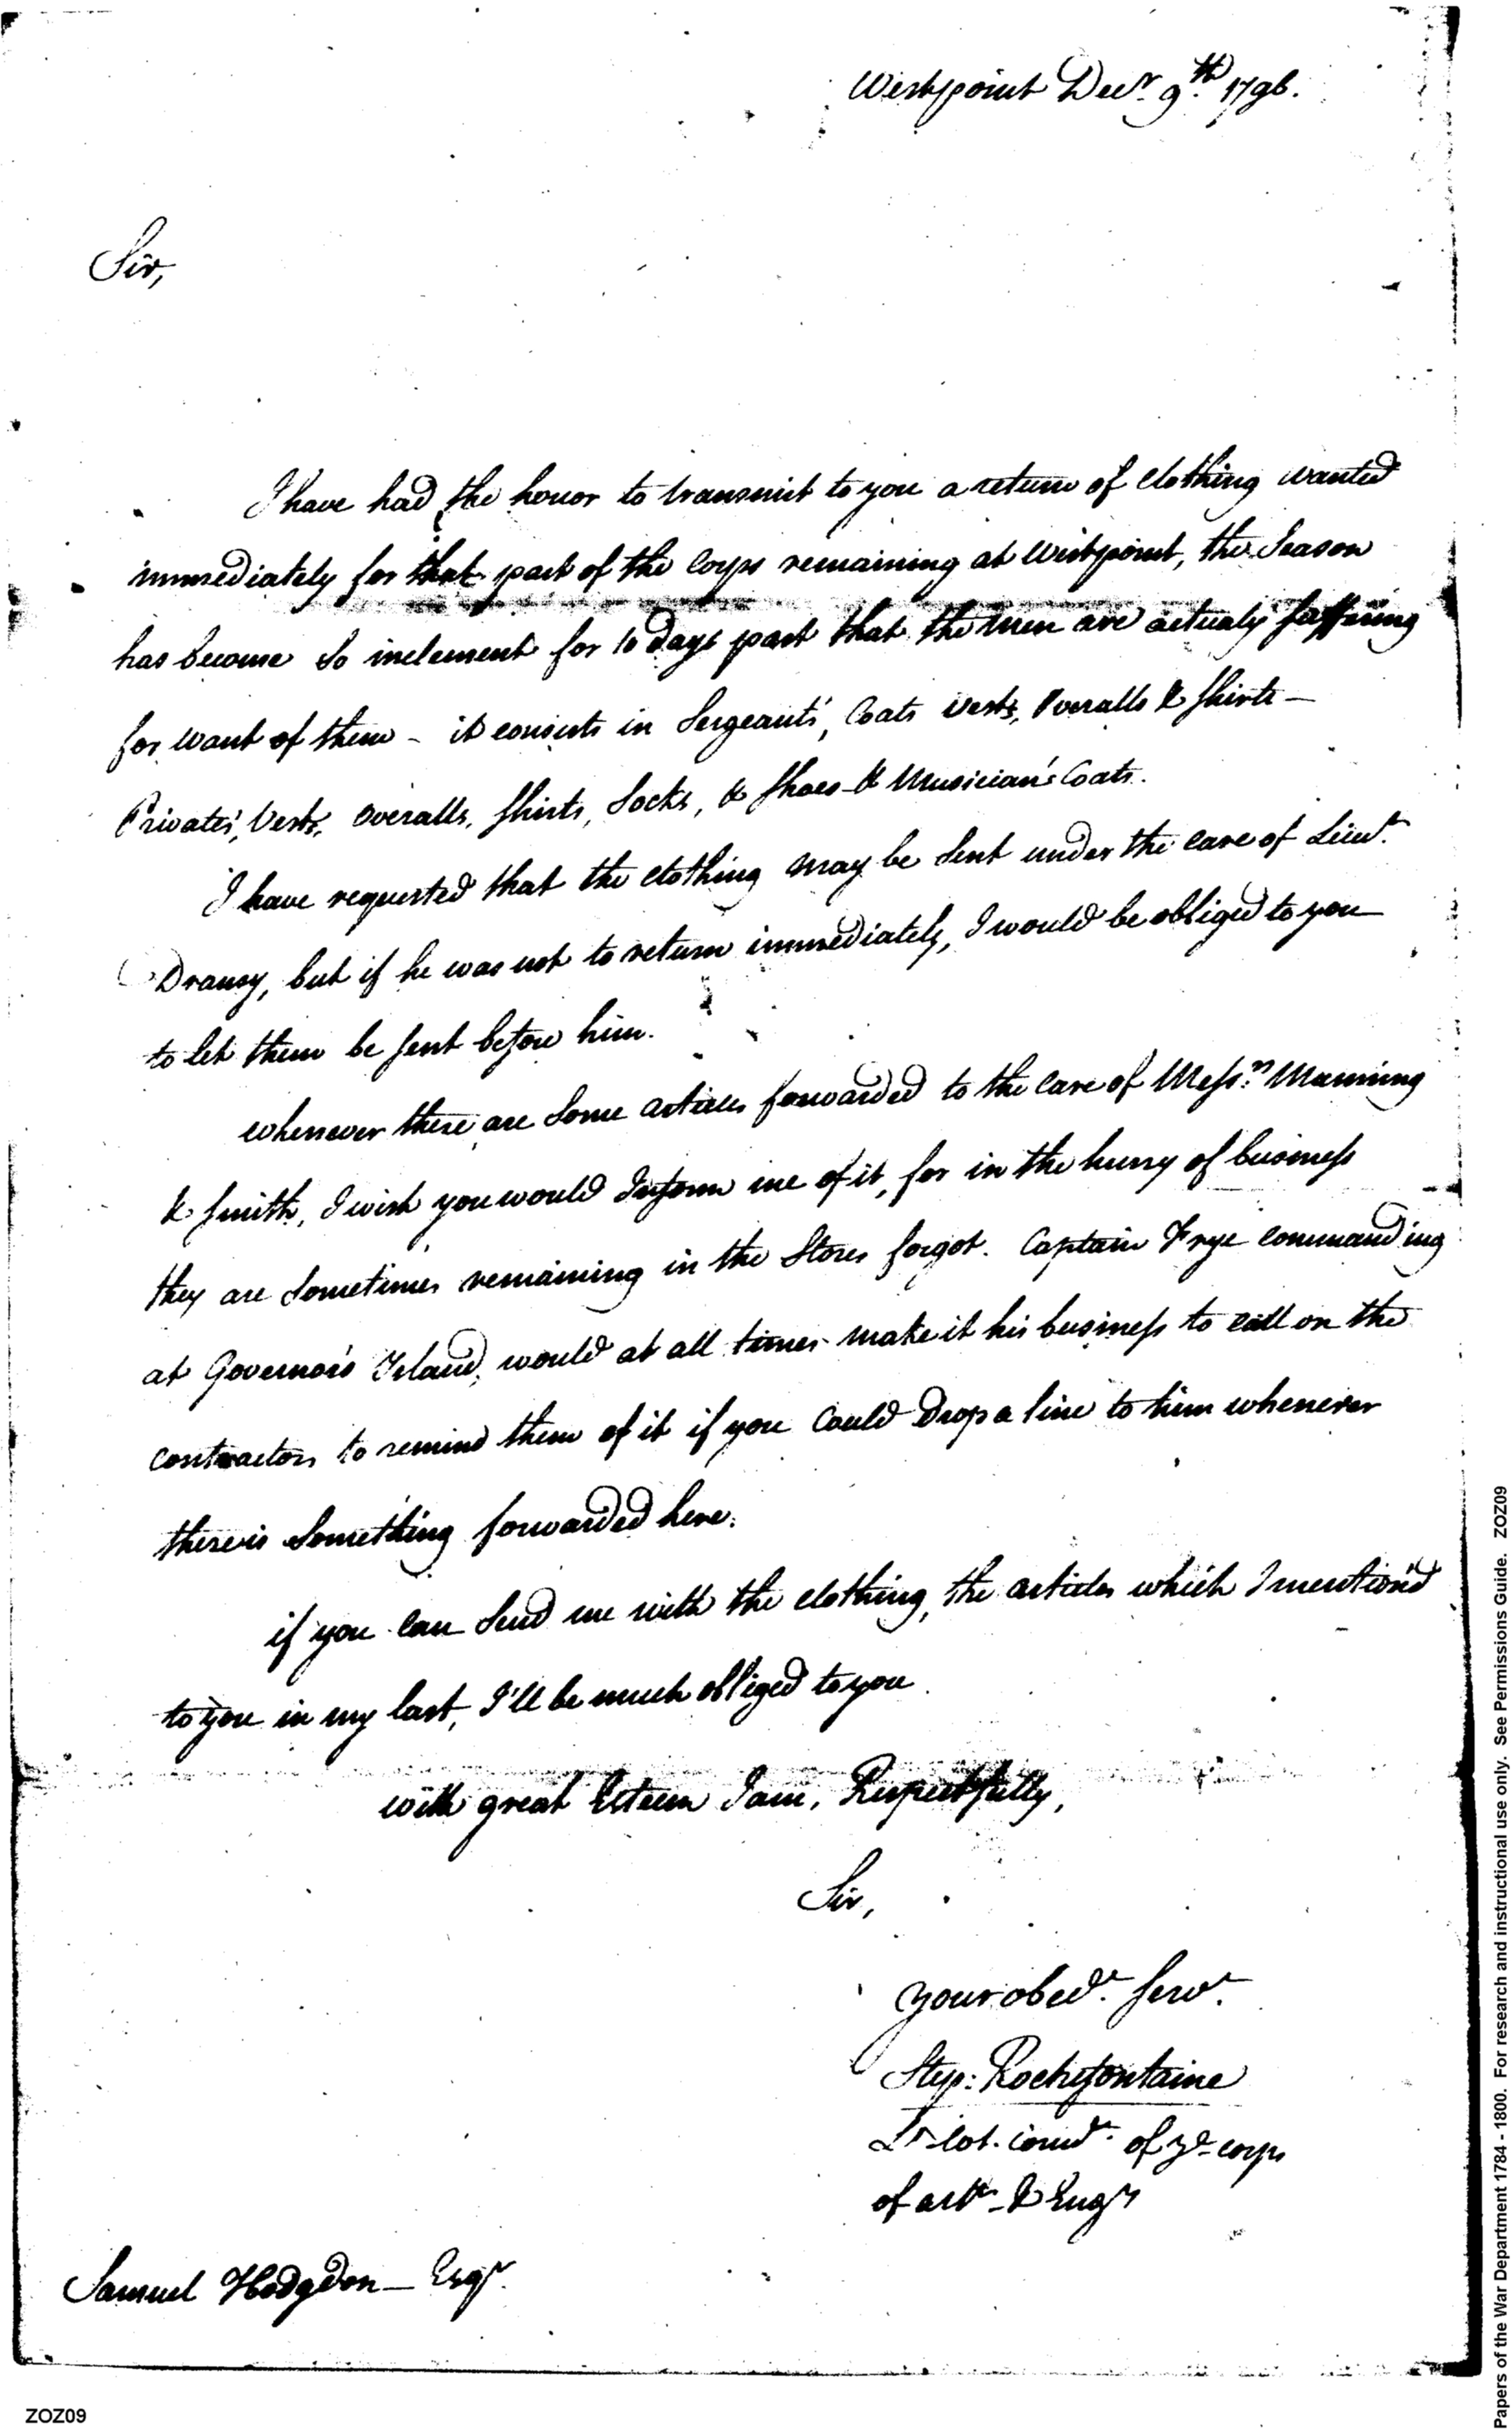 Westpoint Decr. 9th. 1796.
Sir,
I have had the honor to transmit to you a return of Clothing wanted
immediately for that part of the Corps remaining at Westpoint, the Season
has become So inclement for 10 days past that the men are actualy suffering
for want of them - it consists in Sergeants', Coats vests, Overalls & Shirts -
Privates', Vests, Overalls, Shirts, Socks, & Shoes & Musician's Coats.
I have requested that the clothing may be Sent under the care of Lieut.
Dransy, but if he was not to return immediately, I would be obliged to you
to let them be sent before him.
whenever there are Some articles forwarded to the Care of Messrs. Manning
& Smith, I wish you would Inform me of it, for in the hurry of business
they are Sometimes remaining in the Stores forgot. Captain Frye Commanding
at Governor's Island, would at all times make it his business to call on the
contractors to remind them of it if you Could Drop a line to him whenever
there is Something forwarded here.
if you Can Send me with the clothing, the articles which I mention'd
to you in my last, I'll be much obliged to you
with great Esteem I am, Respectfully,
Sir,
your obedt. Servt.
Step: Rochefontaine
Lt Col. Comdt. of ye corps
of artt. & Engrs
Samuel Hodgdon - Esqr.
ZOZ09
Papers of the War Department 1784 - 1800. For research and instructional use only. See Permissions Guide. ZOZ09